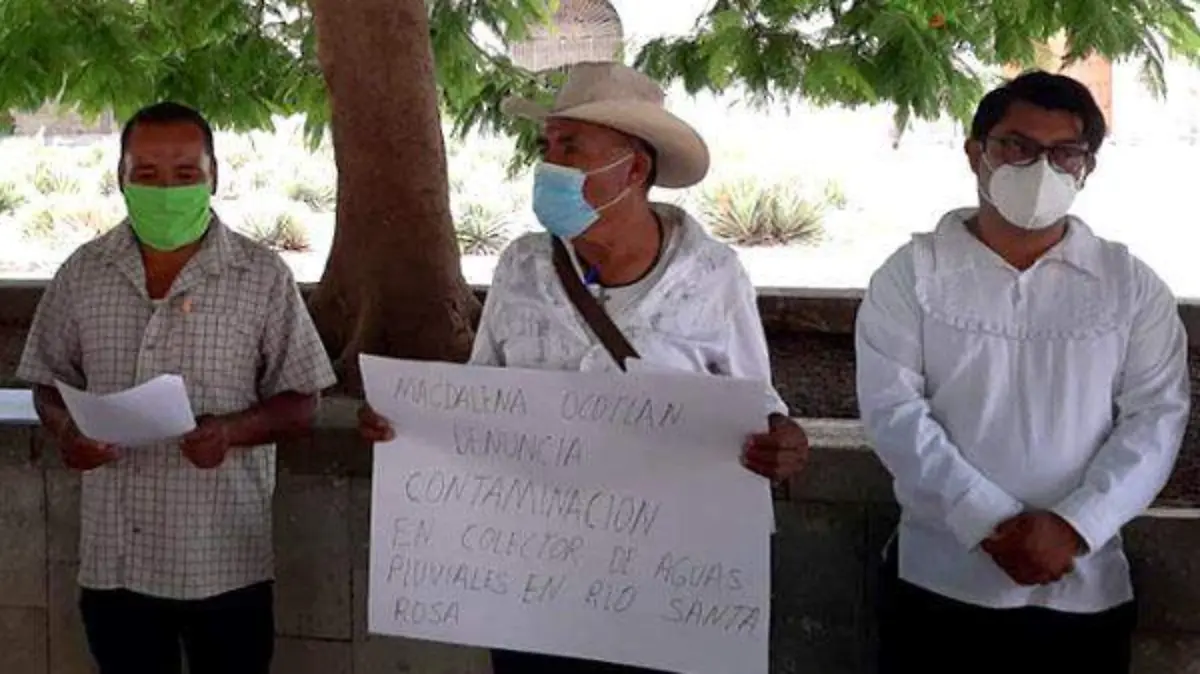 MAGDALENA OCOTLAN
DENUNCIA
CONTAMINACION
EN COLECTOR DE AGUAS
PLUVIALES EN RIO SANTA
ROSA